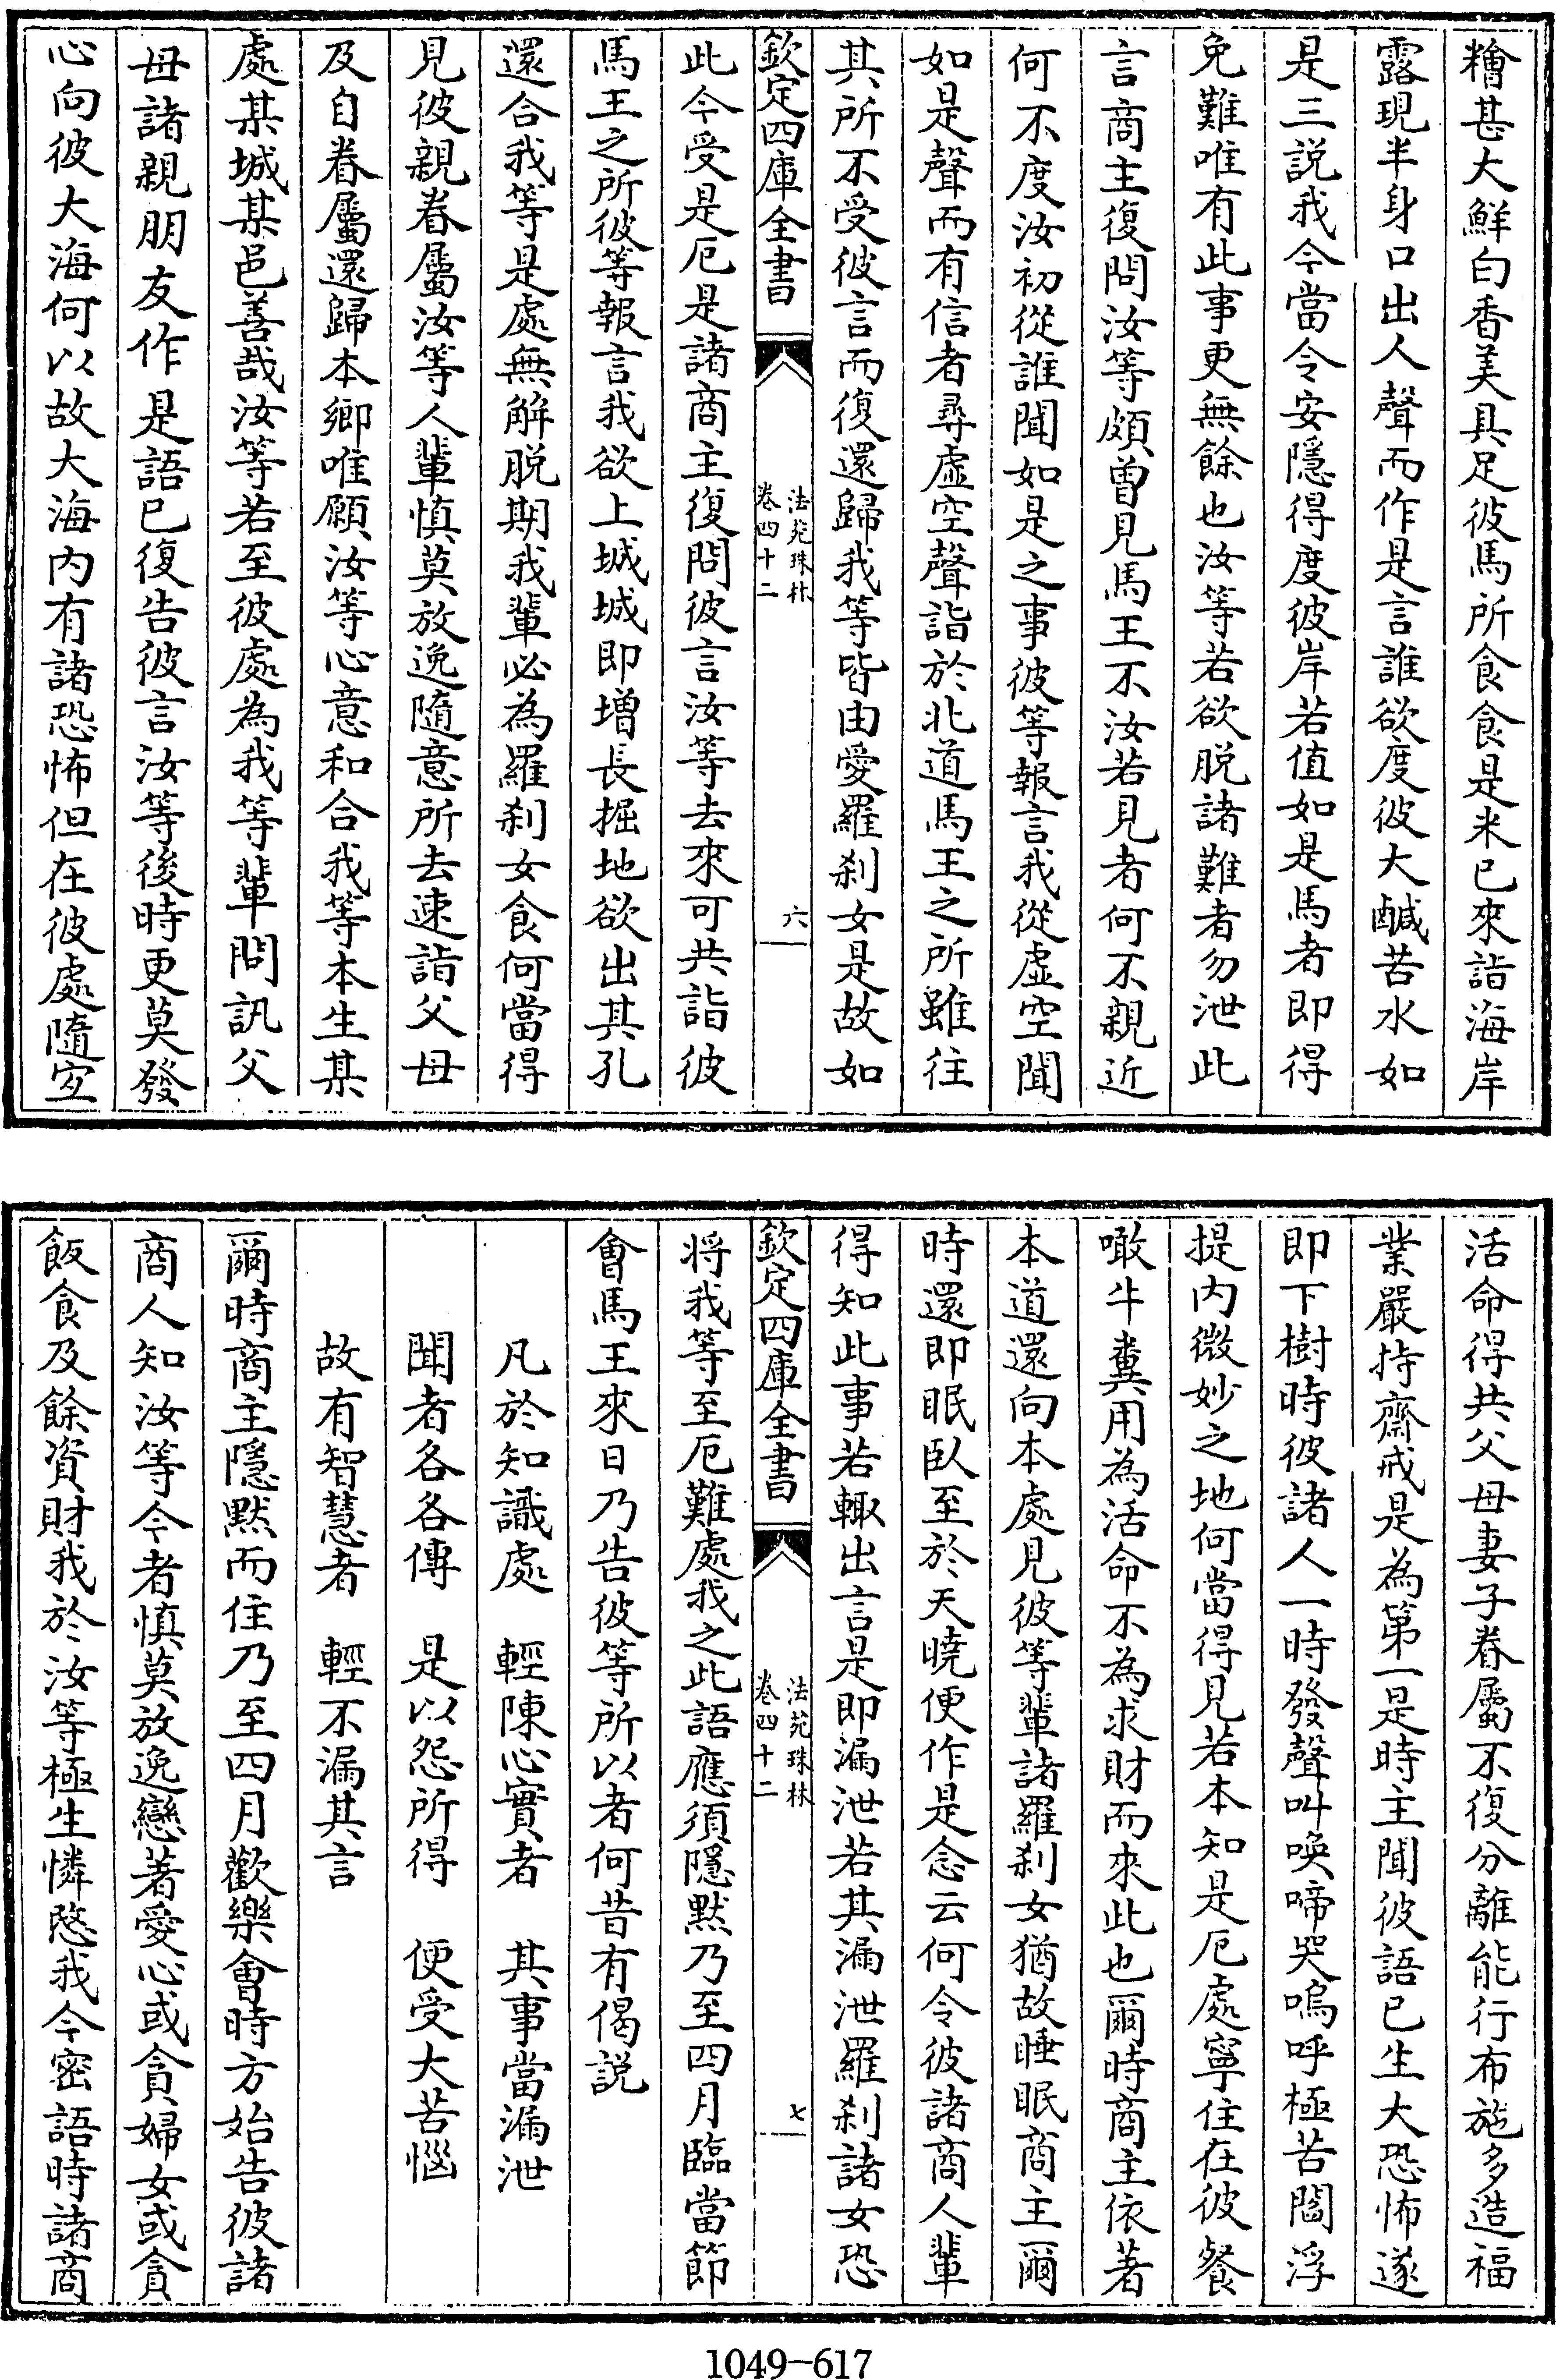 糩甚大鮮白香美具足彼馬所食食是米已來詣海岸
露現半身口出人聲而作是言誰欲度彼大鹹苦水如
是三說我今當令安隱得度彼岸若值如是馬者即得
免難唯有此事更無餘也汝等若欲脫諸難者勿泄此
言商主復問汝等頗曾見馬王不汝若見者何不親近
何不度汝初從誰聞如是之事彼等報言我從虛空聞
如是聲而有信者尋虛空聲詣於北道馬王之所雖往
其所不受彼言而復還歸我等皆由愛羅刹女是故如
欽定四庫全書
法苑珠林
卷四十二
六
此今受是厄是諸商主復問彼言汝等去來可共詣彼
馬王之所彼等報言我欲上城城即增長掘地欲出其孔
還合我等是處無解脫期我輩必為羅刹女食何當得
見彼親眷屬汝等人輩慎莫放逸隨意所去速詣父母
及自眷屬還歸本鄉唯願汝等心意和合我等本生某
處某城某邑善哉汝等若至彼處為我等輩問訊父
母諸親朋友作是語已復告彼言汝等後時更莫發
心向彼大海何以故大海內有諸恐怖但在彼處隨宜
活命得共父母妻子眷屬不復分離能行布施多造福
業嚴持齋戒是為第一是時主聞彼語已生大恐怖遂
即下樹時彼諸人一時發聲叫喚啼哭嗚呼極苦閻浮
提內微妙之地何當得見若本知是厄處寧住在彼餐
噉牛糞用為活命不為求財而來此也爾時商主依著
本道還向本處見彼等輩諸羅刹女猶故睡眠商主爾
時還即眠臥至於天曉便作是念云何令彼諸商人輩
得知此事若輙出言是即漏泄若其漏泄羅刹諸女恐
欽定四庫全書
法苑珠林
卷四十二
七
將我等至厄難處我之此語應須隱默乃至四月臨當節
會馬王來日乃告彼等所以者何昔有偈說
凡於知識處　輕陳心實者　其事當漏泄
聞者各各傳　是以怨所得　便受大苦惱
故有智慧者　輕不漏其言
爾時商主隱默而住乃至四月歡樂會時方始告彼諸
商人知汝等今者慎莫放逸戀著愛心或貪婦女或貪
飯食及餘資財我於汝等極生憐愍我今密語時諸商
1049-617